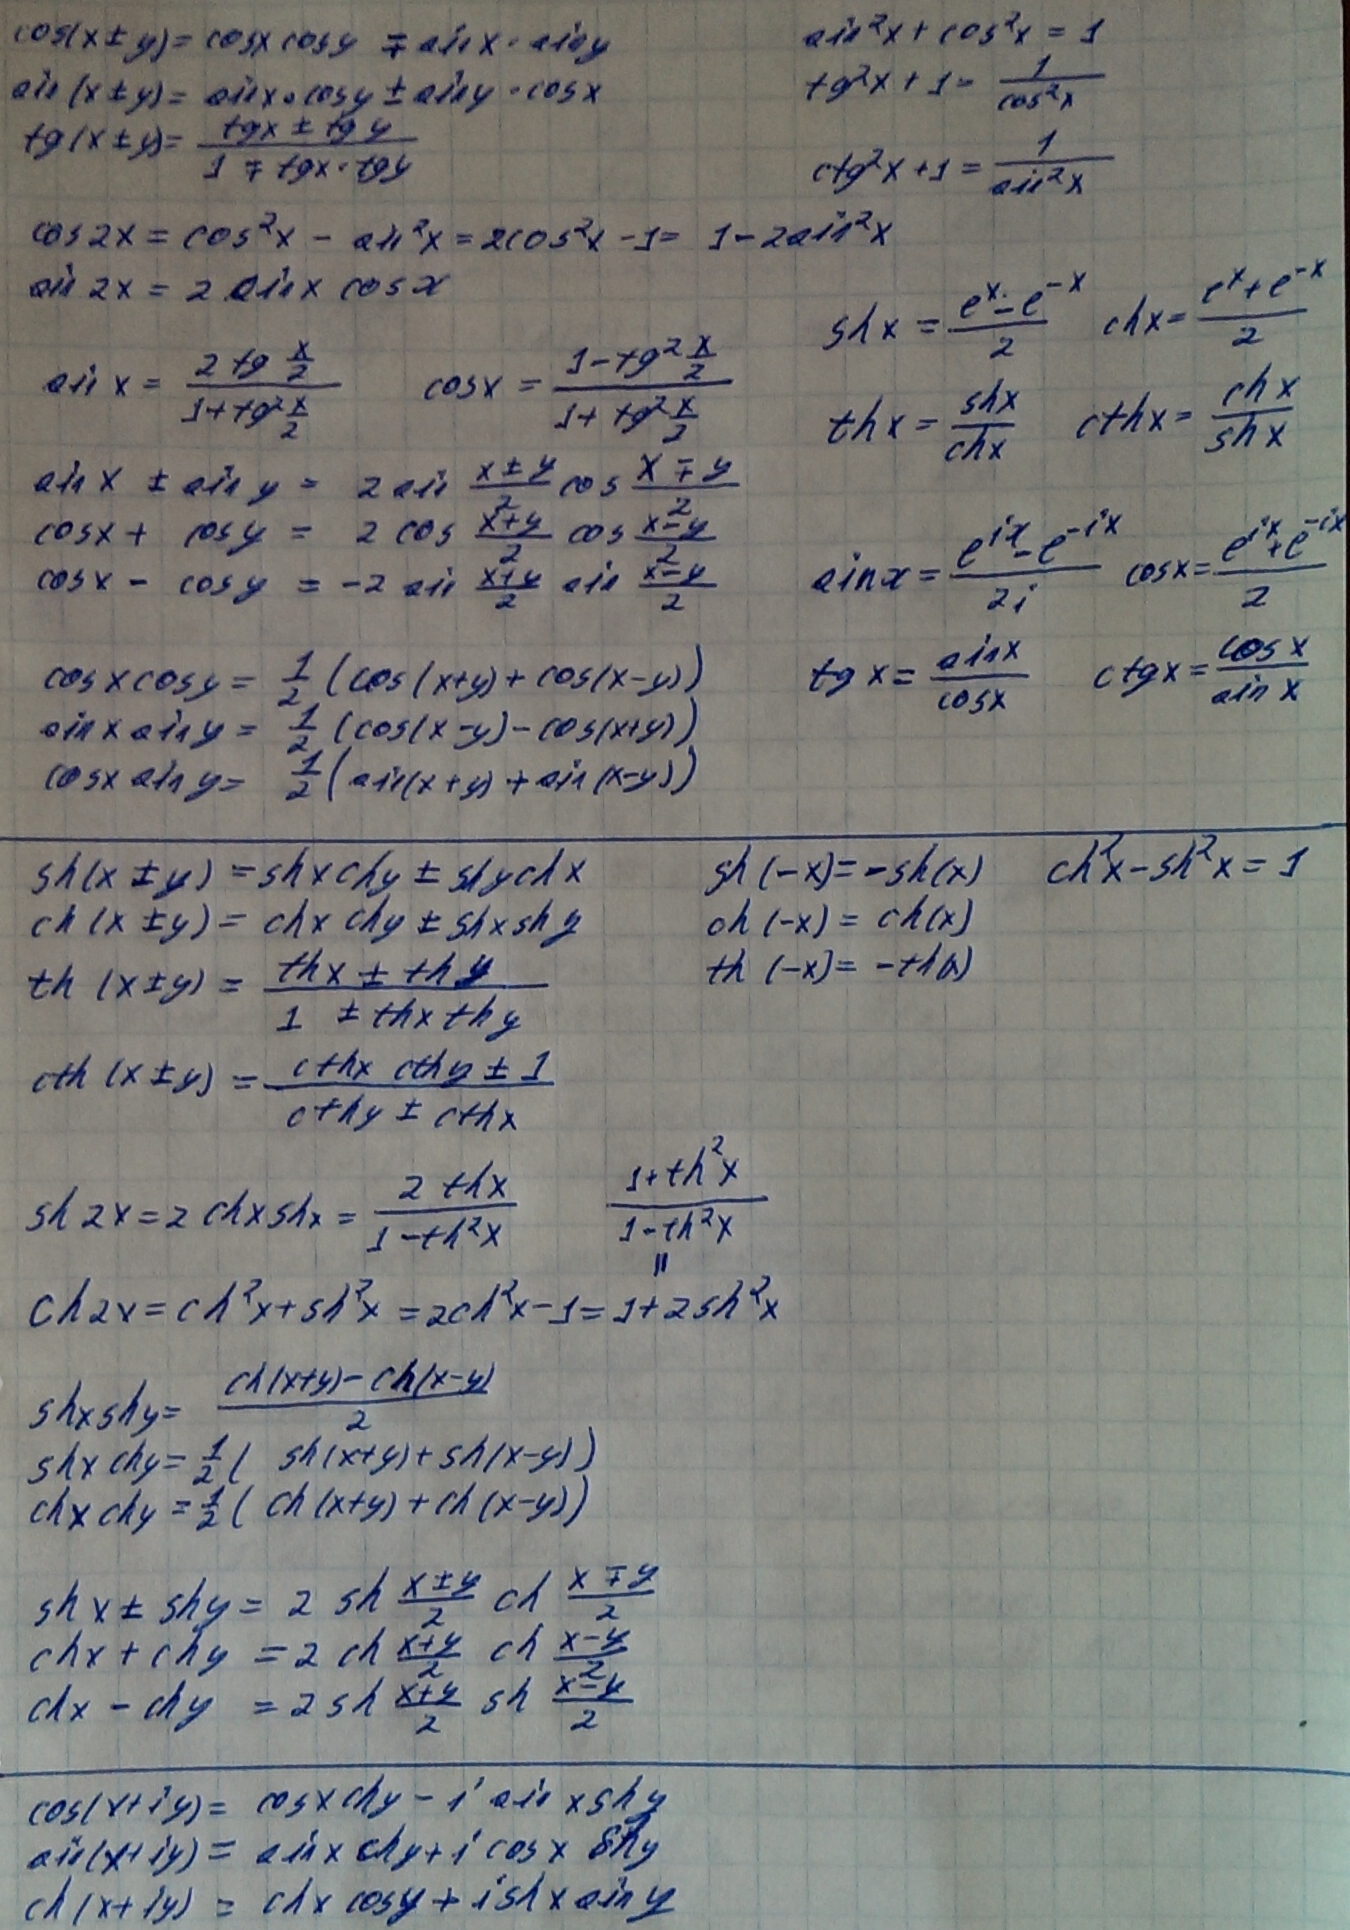 cos(x±y)= cosx cosy ∓ sinx·siny
sin(x±y)= sinx·cosy ± siny·cosx
tg(x±y)= (tgx ± tgy)/(1 ∓ tgx·tgy)
sin²x + cos²x = 1
tg²x + 1 = 1/cos²x
ctg²x + 1 = 1/sin²x
cos2x = cos²x − sin²x = 2cos²x − 1 = 1 − 2sin²x
sin2x = 2 sinx cosx
sin x = (2 tg x/2)/(1+tg² x/2) cosx = (1−tg² x/2)/(1+tg² x/2)
sinx ± siny = 2 sin (x±y)/2 cos (x∓y)/2
cosx + cosy = 2 cos (x+y)/2 cos (x−y)/2
cosx − cosy = −2 sin (x+y)/2 sin (x−y)/2
cosxcosy = 1/2 (cos(x+y) + cos(x−y))
sinx siny = 1/2 (cos(x−y) − cos(x+y))
cosx siny = 1/2 (sin(x+y) + sin(x−y))
shx = (eˣ − e⁻ˣ)/2 chx = (eˣ + e⁻ˣ)/2
thx = shx/chx cthx = chx/shx
sinx = (e^ix − e^−ix)/2i cosx = (e^ix + e^−ix)/2
tgx = sinx/cosx ctgx = cosx/sinx
sh(x±y) = shxchy ± shychx
ch(x±y) = chx chy ± shxshy
th(x±y) = (thx ± thy)/(1 ± thx thy)
cth(x±y) = (cthx cthy ± 1)/(cthy ± cthx)
sh(−x) = −sh(x) ch²x − sh²x = 1
ch(−x) = ch(x)
th(−x) = −th(x)
sh2x = 2chxshx = (2 thx)/(1−th²x)
(1+th²x)/(1−th²x)
=
ch2x = ch²x + sh²x = 2ch²x − 1 = 1 + 2sh²x
shxshy = (ch(x+y) − ch(x−y))/2
shxchy = 1/2 (sh(x+y) + sh(x−y))
chxchy = 1/2 (ch(x+y) + ch(x−y))
shx ± shy = 2 sh (x±y)/2 ch (x∓y)/2
chx + chy = 2 ch (x+y)/2 ch (x−y)/2
chx − chy = 2 sh (x+y)/2 sh (x−y)/2
cos(x+iy) = cosxchy − i sinxshy
sin(x+iy) = sinx chy + i cosx shy
ch(x+iy) = chx cosy + i shx siny